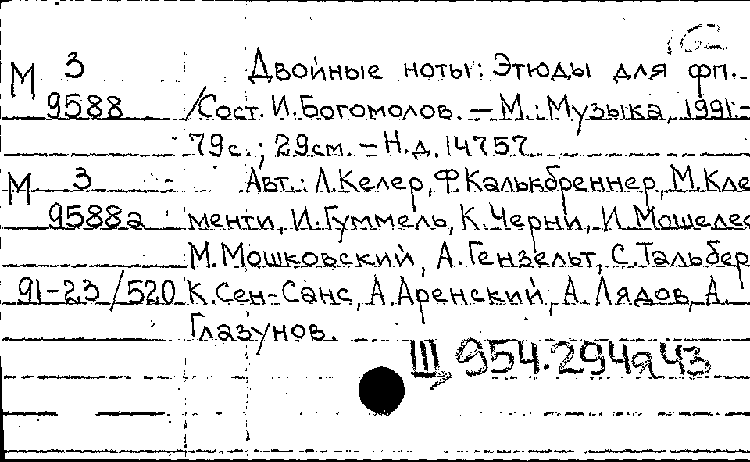 1Б2
М 3 Двойные ноты: Этюды для фп.
9588 /Сост. И.Богомолов. – М.: Музыка, 1991.-
79с.; 29см. – Н.д. 14757
М 3 Авт.: Л.Келер, Ф.Калькбреннер, М.Кле
9588а менти, И.Гуммель, К.Черни, И.Мошелес
М.Мошковский, А.Гензельт, С.Тальбер
91-23/520 К.Сен-Санс, А.Аренский, А.Лядов, А.
Глазунов.
Щ 954.294я43